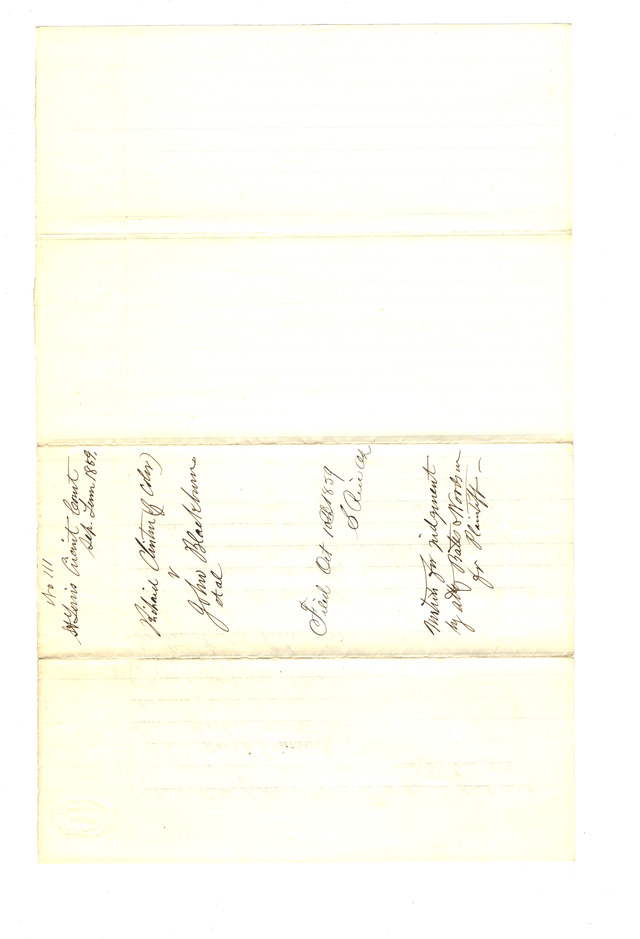 No 111
St Louis Circuit Court
Sep. Term 1859.
Richard Clinton (of Color)
v
John Blackburn
et al
Filed Oct 1859
S Rice Clk
Motion for judgment
by atty Bates & Woodson
for Plaintiff